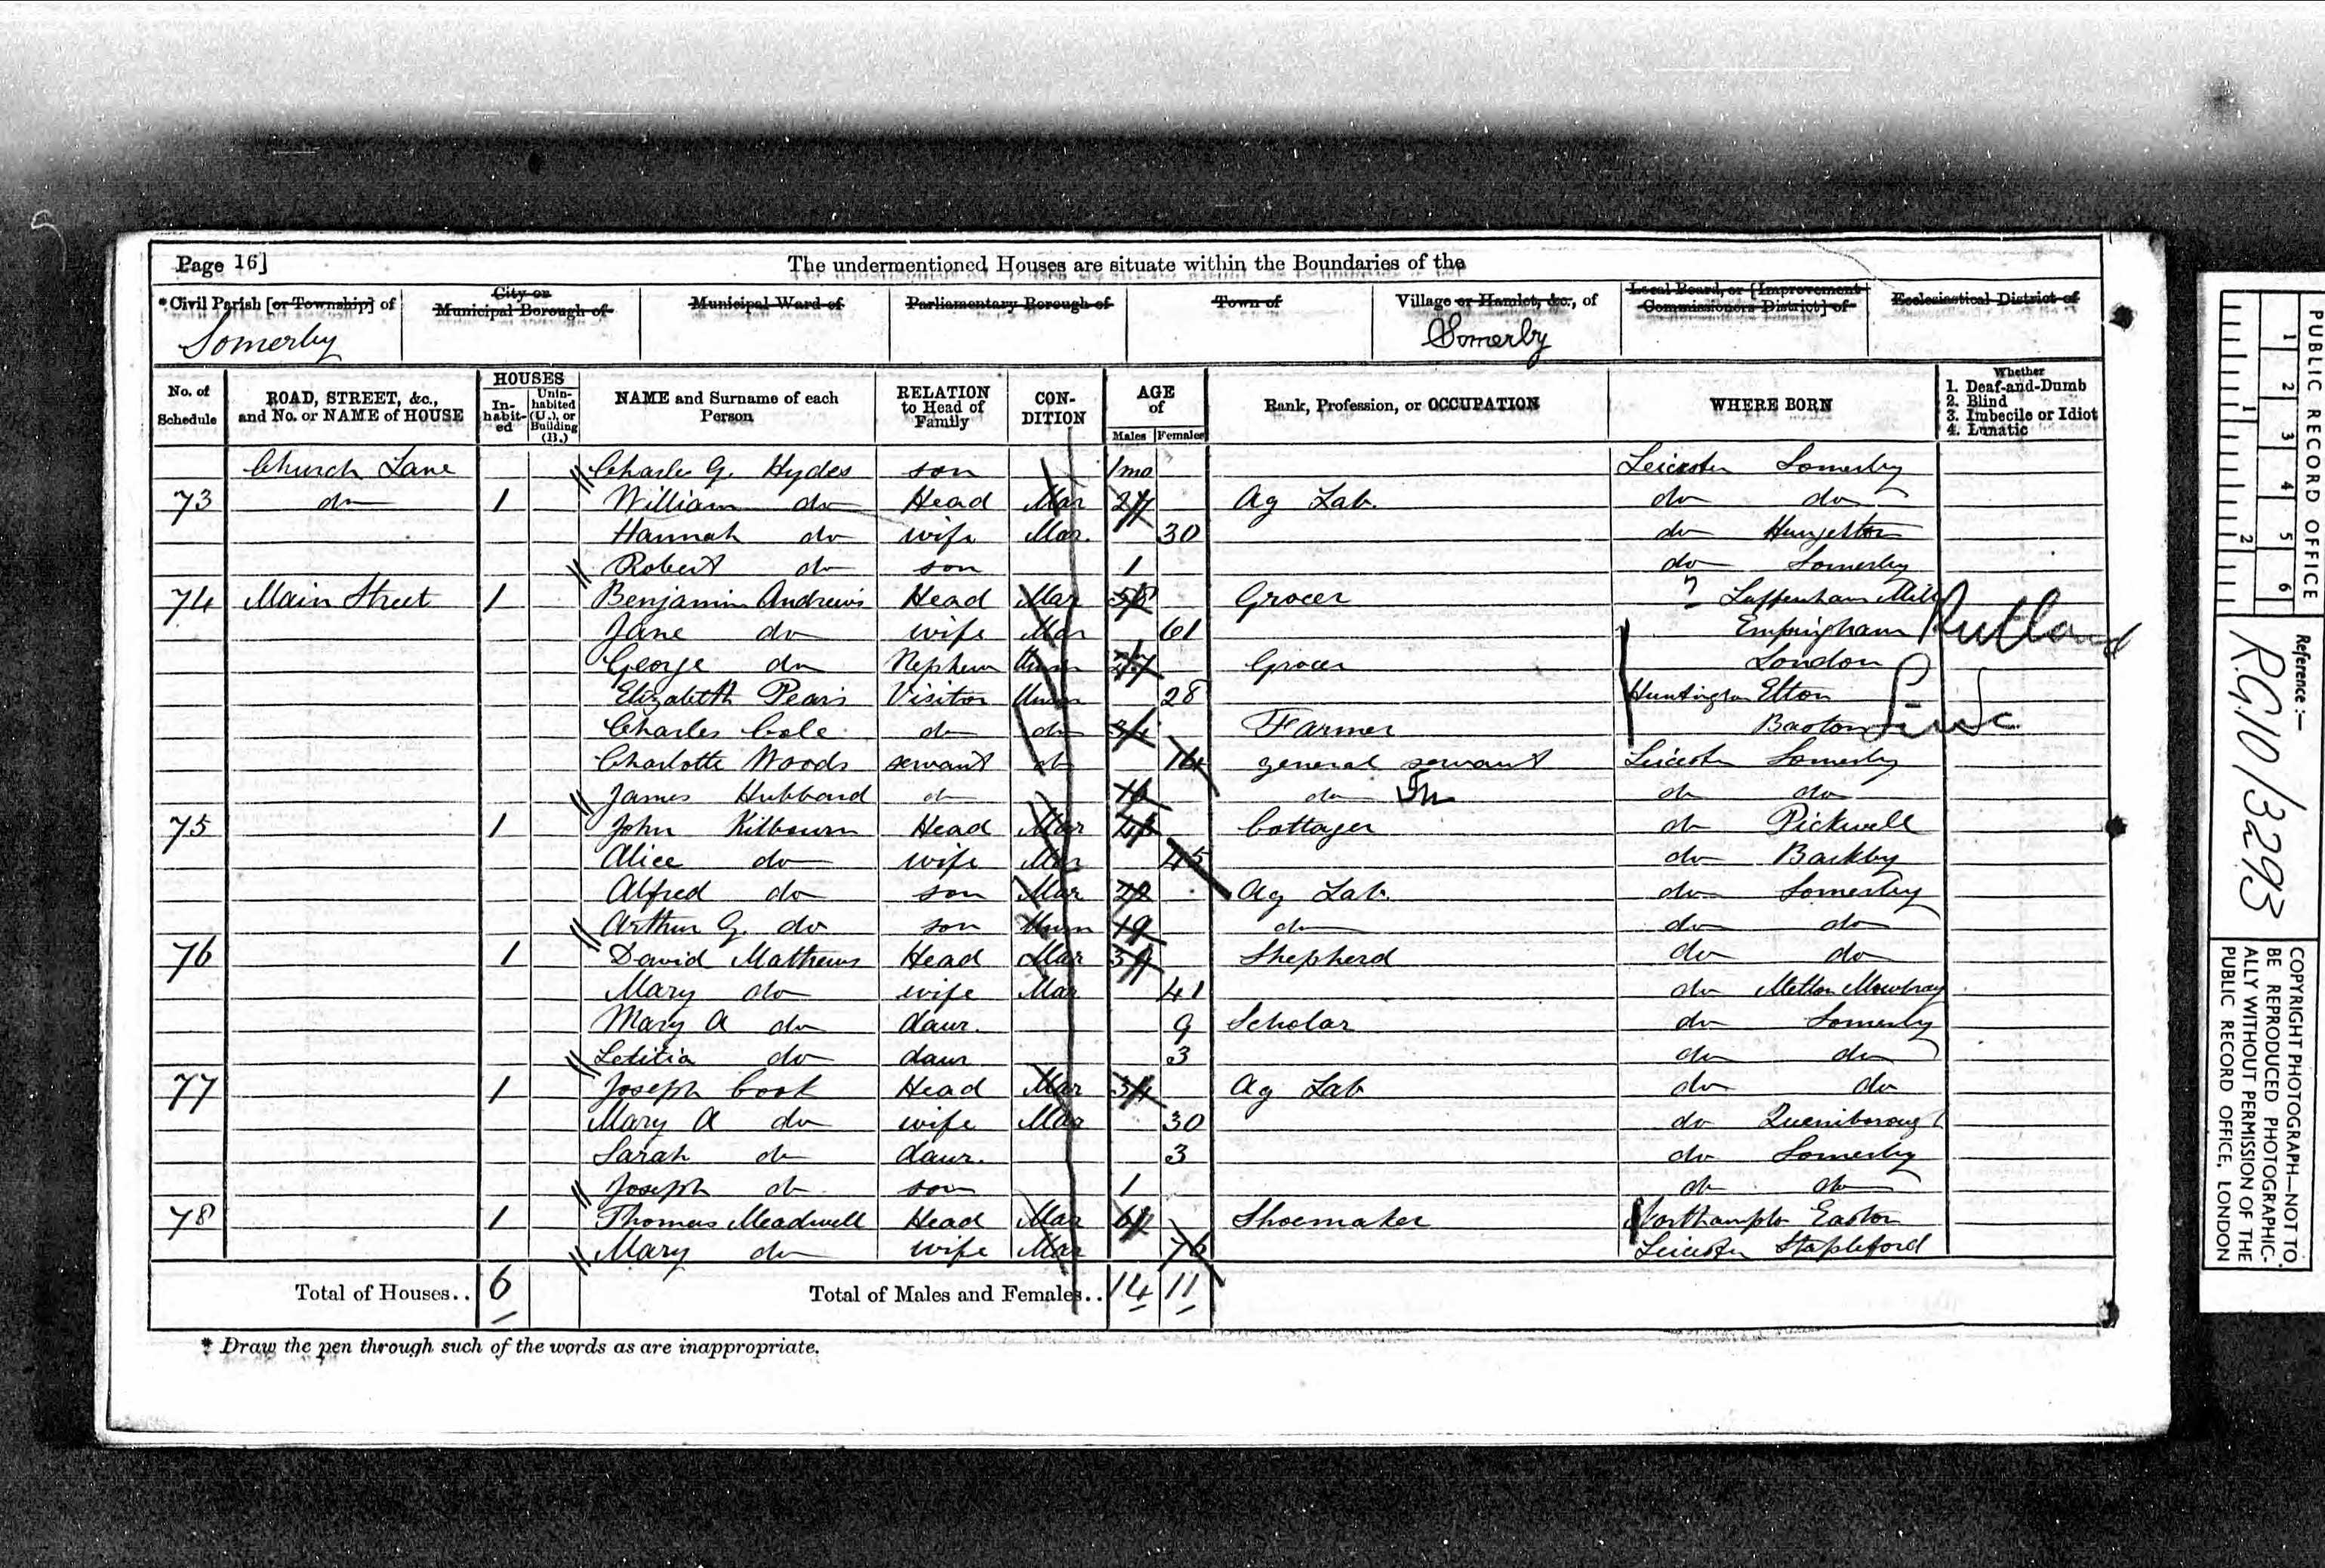 Page 16]
The undermentioned Houses are situate within the Boundaries of the
*Civil Parish [or Township] of
City or Municipal Borough of
Municipal Ward of
Parliamentary Borough of
Town of
Village or Hamlet, &c., of
Local Board, or [Improvement Commissioners District] of
Ecclesiastical District of
Somerby
Somerby
No. of Schedule
ROAD, STREET, &c., and No. or NAME of HOUSE
HOUSES
In-habit-ed
Unin-habited (U.), or Building (B.)
NAME and Surname of each Person
RELATION to Head of Family
CON-DITION
AGE of
Males
Females
Rank, Profession, or OCCUPATION
WHERE BORN
Whether
1. Deaf-and-Dumb
2. Blind
3. Imbecile or Idiot
4. Lunatic
Church Lane Charles G. Hydes son 1mo Leicester Somerby
73 do 1 William do Head Mar 27 Ag Lab. do do
Hannah do wife Mar. 30 do Hungerton
Robert do son 1 do Somerby
74 Main Street 1 Benjamin Andrews Head Mar 58 Grocer ? Luffenham Mill
Jane do wife Mar 61 Empingham Rutland
George do Nephew Unm Grocer London
Elizabeth Pears Visitor Unm 28 Huntingdon Elton
Charles Cole do do 34 Farmer
Charlotte Woods servant do 16 general servant Leicester Somerby
James Hubbard do 16 do do do
75 1 John Kilbourn Head Mar Cottager do Pickwell
Alice do wife Mar 45 do Barkby
Alfred do son Mar 22 Ag Lab. do Somerby
Arthur G. do son Unm 19 do do do
76 1 David Mathews Head Mar 39 Shepherd do do
Mary do wife Mar 41 do Melton Mowbray
Mary A do daur. 9 Scholar do Somerby
Letitia do daur 3 do do
77 1 Joseph Cook Head Mar 34 Ag Lab do do
Mary A do wife Mar 30 do Queniborough
Sarah do daur. 3 do Somerby
Joseph do son 1 do do
78 1 Thomas Meadwell Head Mar 64 Shoemaker Northampton Easton
Mary do wife Mar 76 Leicester Stapleford
Total of Houses.. 6
Total of Males and Females.. 14 11
* Draw the pen through such of the words as are inappropriate.
PUBLIC RECORD OFFICE
1 2 3 4 5 6
1 2
Reference :—
RG 10/3293
COPYRIGHT PHOTOGRAPH—NOT TO
BE REPRODUCED PHOTOGRAPHIC-
ALLY WITHOUT PERMISSION OF THE
PUBLIC RECORD OFFICE, LONDON